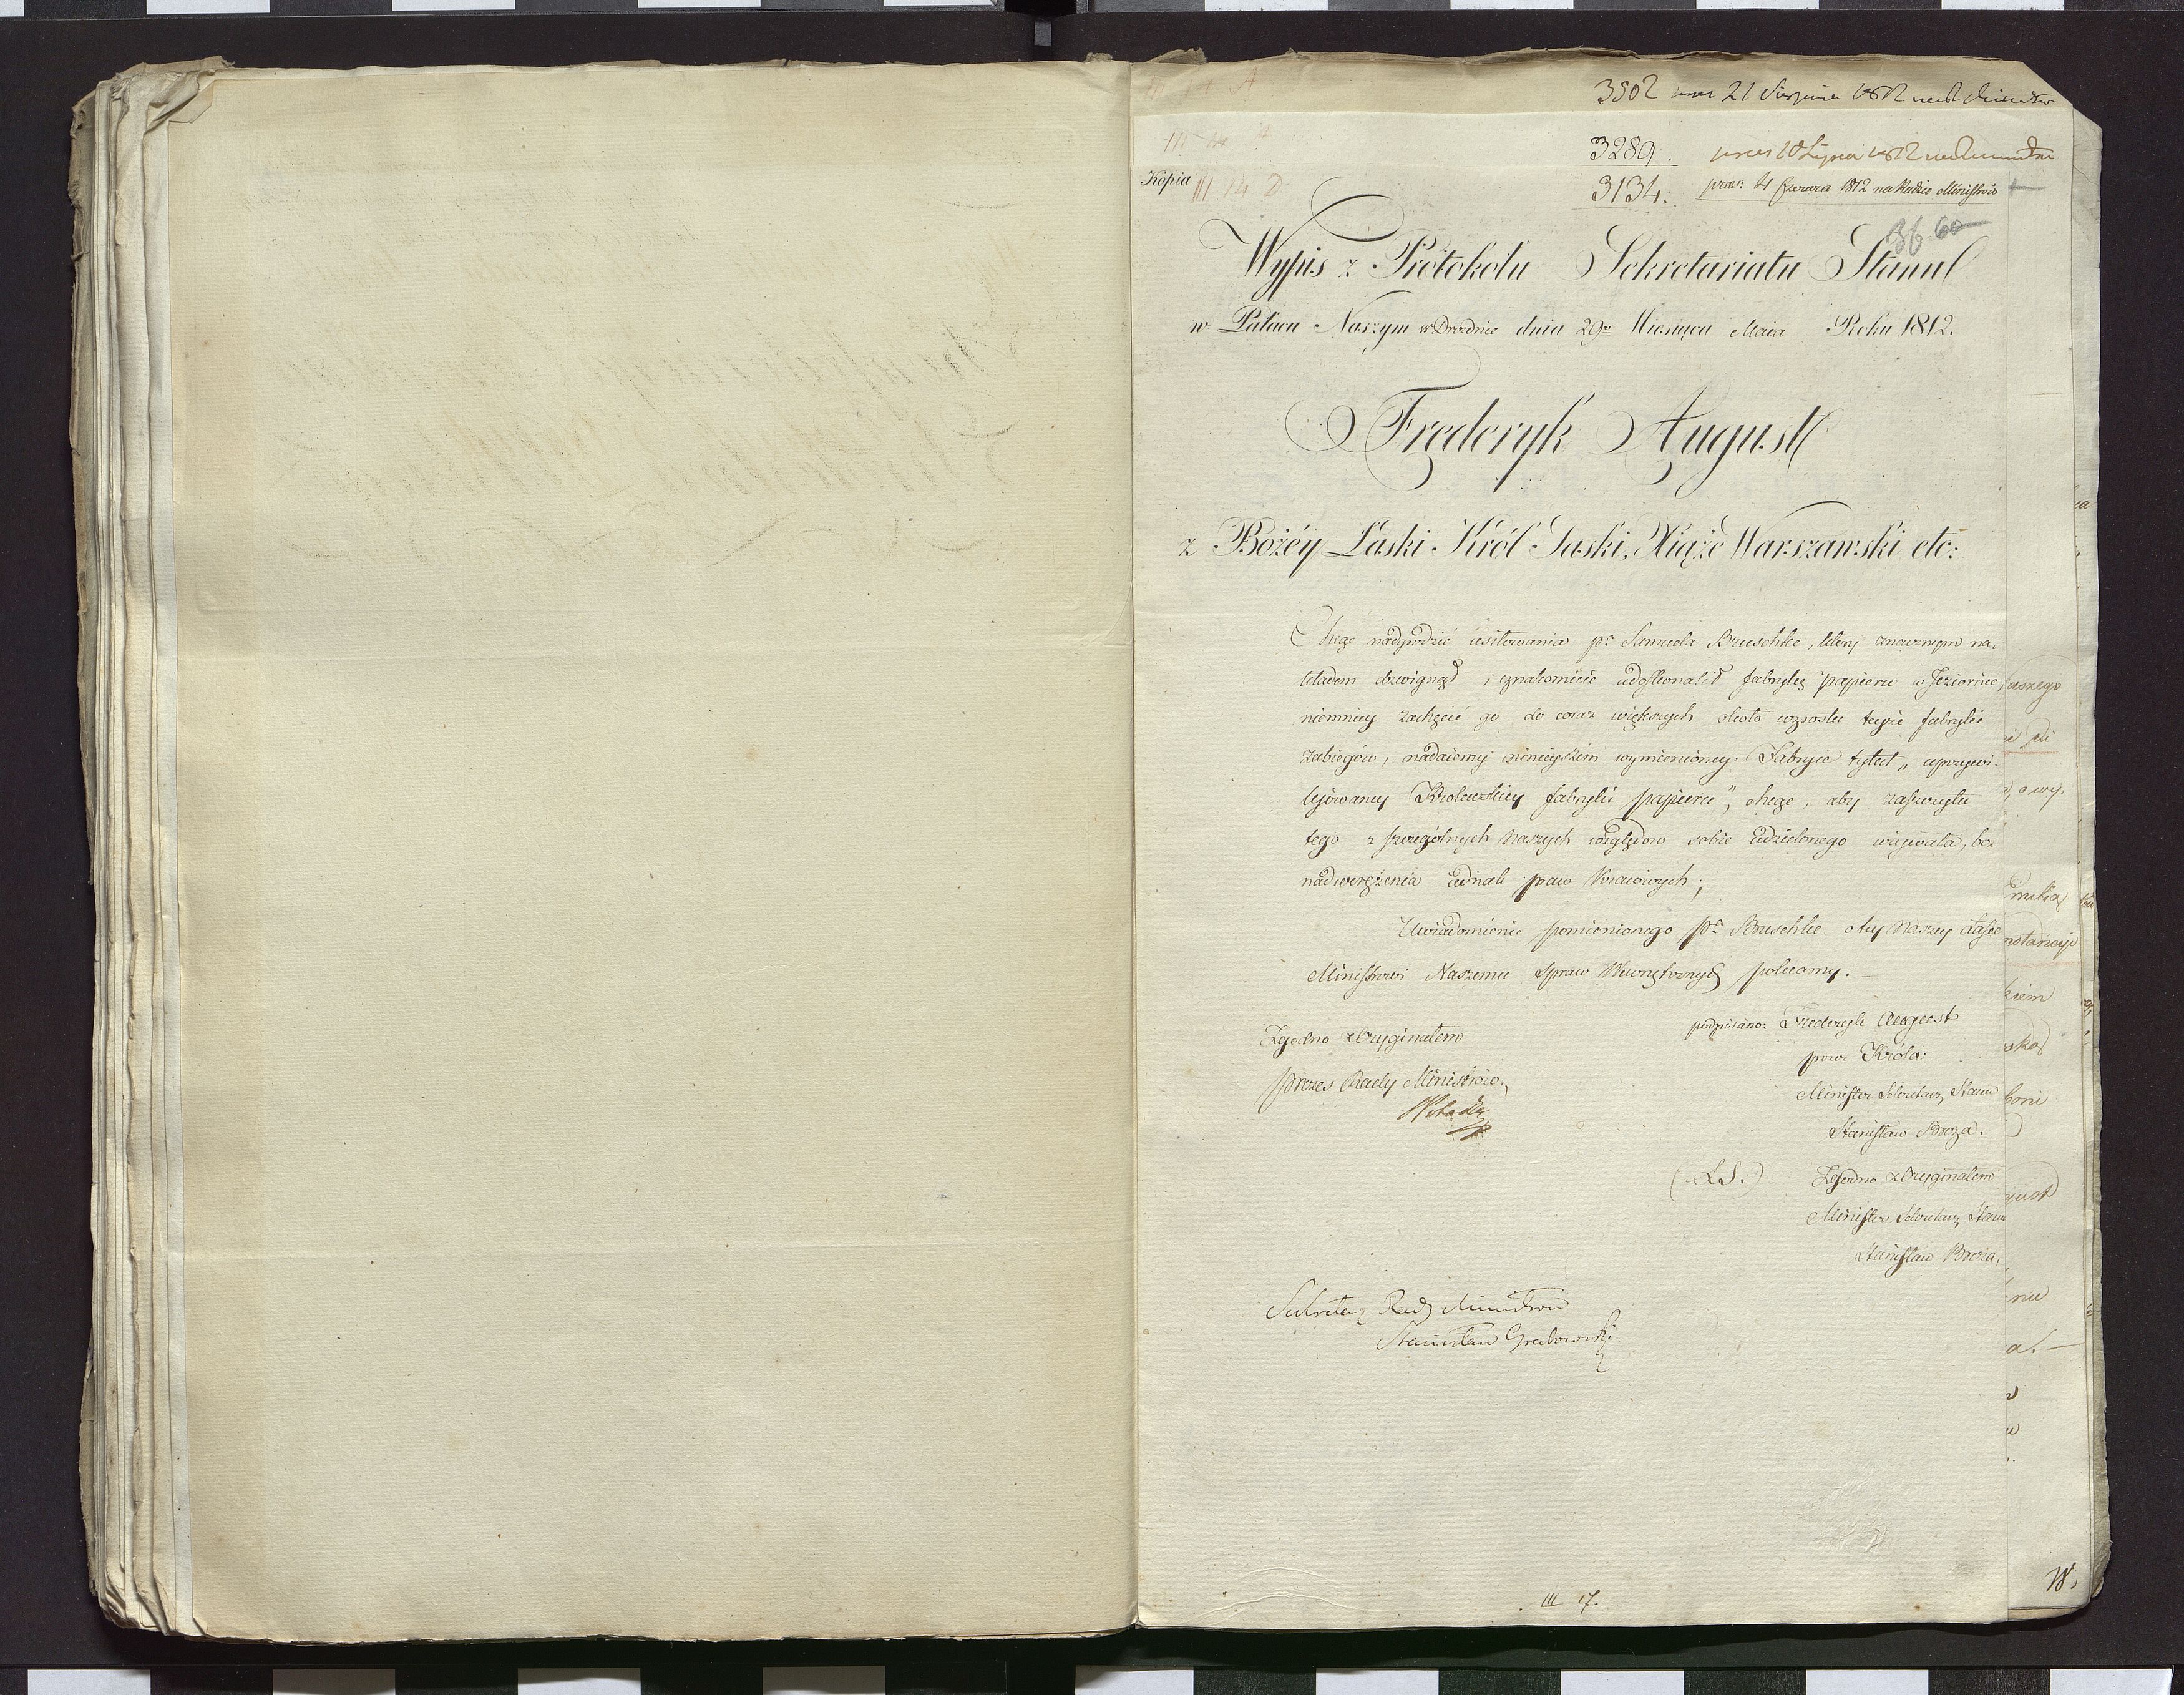 3502 21 Sierpnia 1812
3289. 10 Lipca 1812
Kopia III 14 D
3134. praes: 4 Czerwca 1812 na Radzie Ministrów
36 60
Wypis z Protokołu Sekretariatu Stanu
w Pałacu Naszym w Dreźnie dnia 29go Miesiąca Maia Roku 1812.
Fryderyk August
z Bożéy Łaski Król Saski, Xiąże Warszawski etc:
Chcąc nadgrodzić usiłowania Pa Samuela Brueschke, który znacznym na-
kładem dzwignął i znakomicie udoskonalił fabrykę papieru w Jeziornie
niemniey zachęcić go do coraz większych około wzrostu teyże fabryki
zabiegów, nadaiemy ninieyszém wymienioney Fabryce tytuł „uprzywi-
lejowaney Krolewskiey fabryki papieru”, chcąc, aby zaszczytu
tego z szczególnych Naszych względów sobie udzielonego używała, bez
nadwerężenia iednak praw Kraiowych;
Uwiadomienie pomienionego Pa Brueschke o tey Naszey łasce
Ministrowi Naszemu Spraw Wewnętrznych polecamy.
podpisano: Fryderyk August
Zgodno z Oryginałem
przez Króla:
Prezes Rady Ministrów.
Minister Sekretarz Stanu
Stanisław Breza.
(L.S.) Zgodno z Oryginałem
Minister Sekretarz Stanu
Stanisław Breza.
Sekretarz Rady Ministrów
Stanisław Grabowski
III 17.